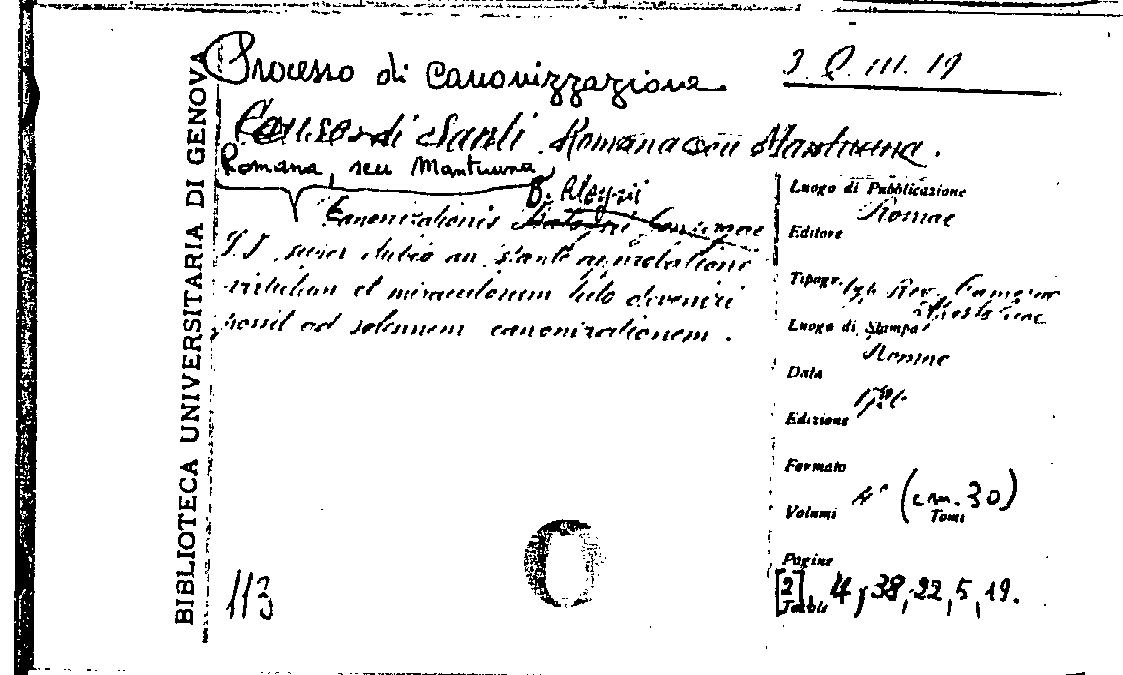 Processo di Canonizzazione
3. Q. III. 19
Cause di Santi. Romana seu Mantuana.
Romana, seu Mantuana,
B. Aloysii
Canonizationis Gonzagae
S. J. super dubio an, stante approbatione
virtutum et miraculorum tuto deveniri
possit ad solemnem canonizationem.
Luogo di Pubblicazione
Romae
Editore
Tipogr. typ. Rev. Camerae
Apostolicae
Luogo di Stampa
Romae
Data
Edizione
Formato
4° (cm. 30)
Volumi
Tomi
Pagine
[2], 4, 38, 22, 5, 19.
Tavole
113
BIBLIOTECA UNIVERSITARIA DI GENOVA